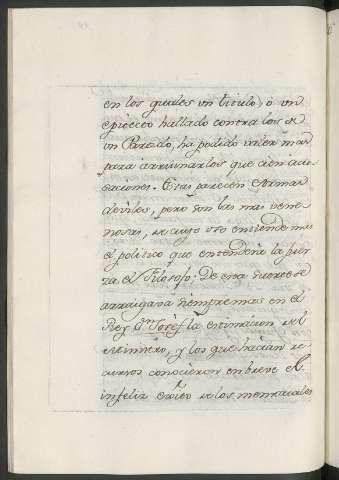 en los quales un titulo, ò un
epiteto hallado contra los de
un Partido, ha podido valer mas
para arruinarlos que cien acu-
saciones. Estas parecen Armas
deviles, pero son las mas vene-
nosas, de cuyo uso entiende mas
el politico que entenderia la fuer-
za el Filosofo: De esta suerte se
arraigava siempre mas en el
Rey Dn. Josèf la estimacion del
Ministro, y los que hacian re-
cursos conocieron en breve el
infeliz exito de los memoriales